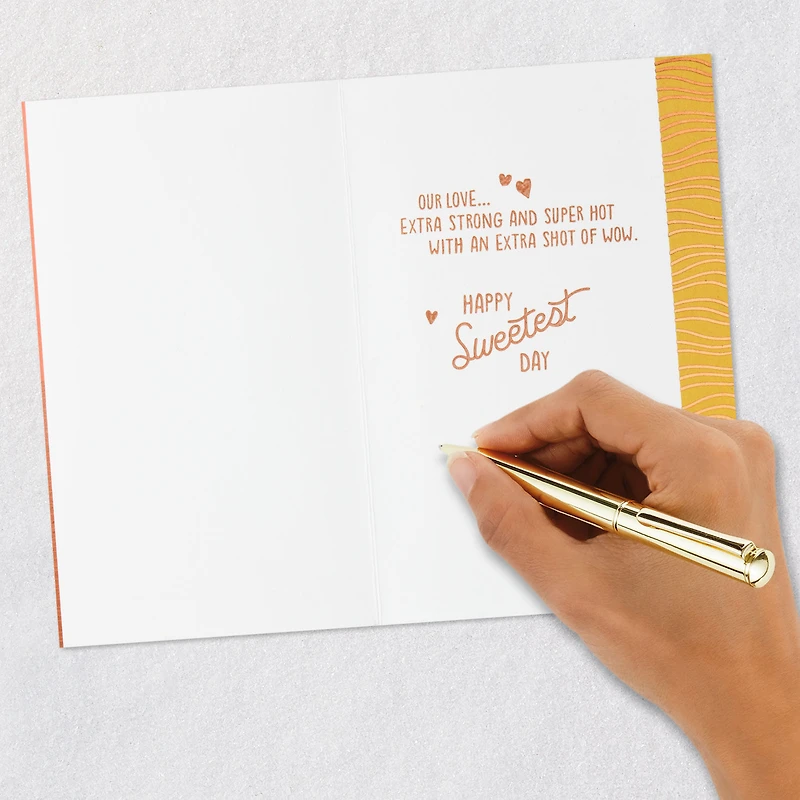 OUR LOVE...
EXTRA STRONG AND SUPER HOT
WITH AN EXTRA SHOT OF WOW.
HAPPY
Sweetest
DAY